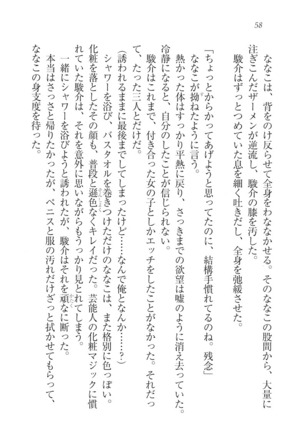 58
ななこは、背をのけ反らせて全身をわななかせる。そのななこの股間から、大量に
注ぎこんだザーメンが逆流し、駿介の膝を汚した。
駿介はずっとつめていた息を細く吐きだし、全身を弛緩させた。
「ちょっとからかってあげようと思ってたのに、結構手慣れてるのね。残念」
ななこが拗ねたように言う。
熱かった体はすっかり平熱に戻り、さっきまでの欲望は嘘のように消え去っていた。
冷静になると、自分のしたことが信じられない。
駿介はこれまで、付き合った女の子としかエッチをしたことがなかった。それだっ
て、たった三人とだけだ。
(誘われるままに最後までしてしまったけど……なんで俺となんか……?)
シャワーを浴び、バスタオルを巻きつけただけのななこは、また格別に色っぽい。
化粧を落としたその顔も、普段と遜色なくキレイだった。芸能人の化粧マジックに慣
れていた駿介は、それを意外に思いながらもうっかり見とれてしまう。
一緒にシャワーを浴びようと誘われたが、駿介はそれを頑なに断った。
本当はさっさと帰りたかったが、ペニスと服の汚れだけざっと拭かせてもらって、
ななこの身支度を待った。